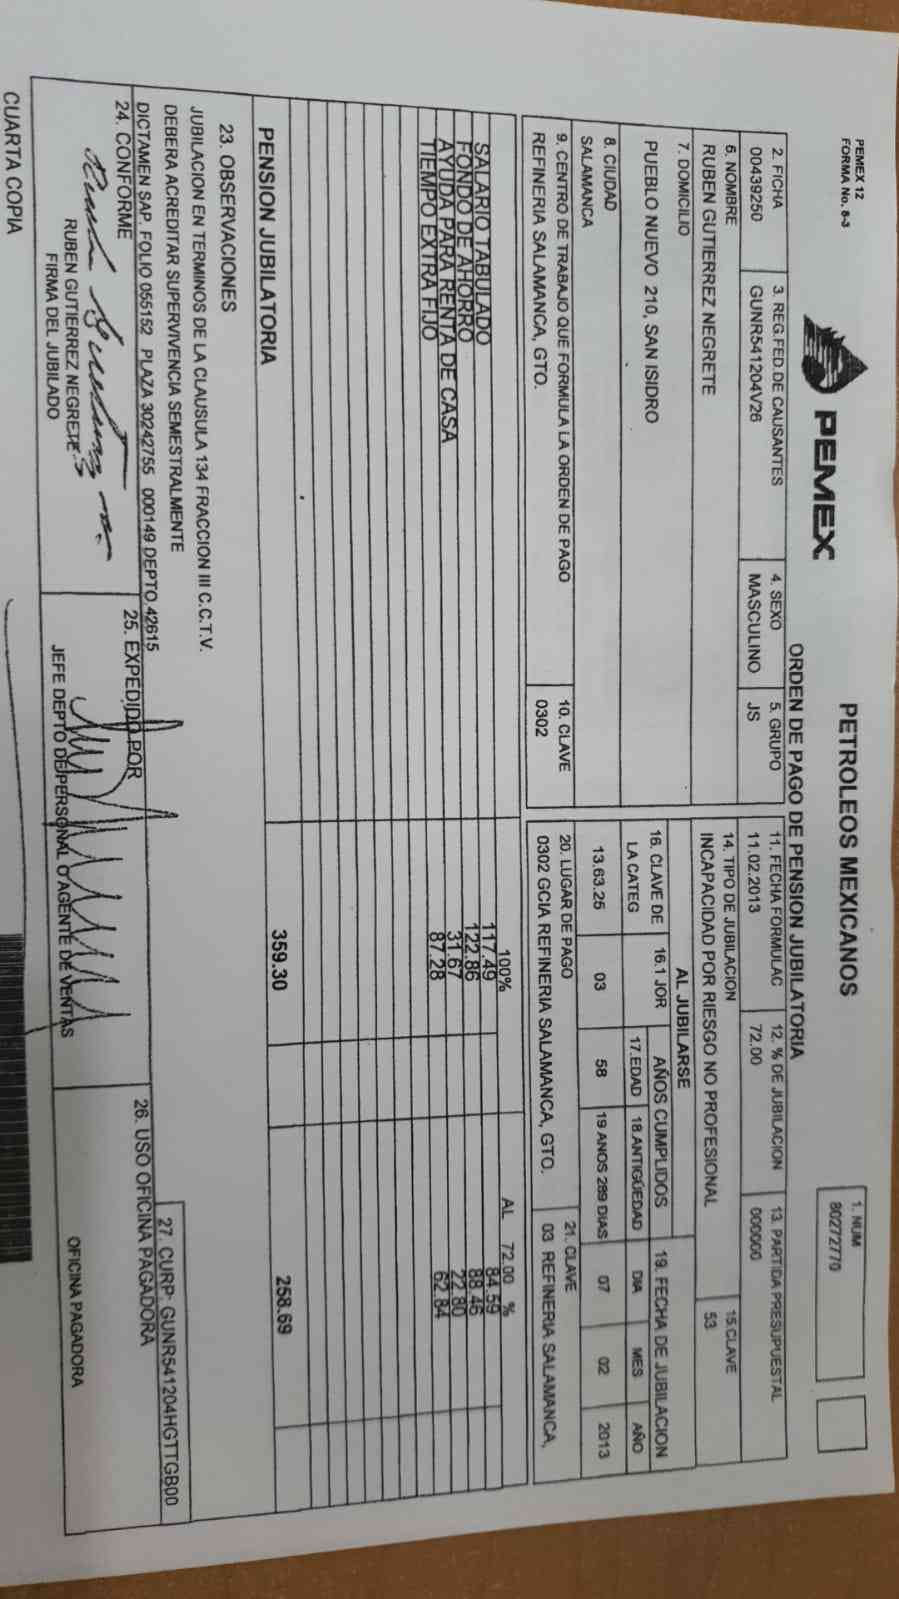 PEMEX 12
FORMA No. 8-3
PEMEX
PETROLEOS MEXICANOS
ORDEN DE PAGO DE PENSION JUBILATORIA
1. NUM
80272770
2. FICHA
00439250
3. REG.FED.DE CAUSANTES
GUNR541204V26
4. SEXO
MASCULINO
5. GRUPO
JS
6. NOMBRE
RUBEN GUTIERREZ NEGRETE
7. DOMICILIO
PUEBLO NUEVO 210, SAN ISIDRO
8. CIUDAD
SALAMANCA
9. CENTRO DE TRABAJO QUE FORMULA LA ORDEN DE PAGO
REFINERIA SALAMANCA, GTO.
10. CLAVE
0302
11. FECHA FORMULAC
11.02.2013
12. % DE JUBILACION
72.00
13. PARTIDA PRESUPUESTAL
000000
14. TIPO DE JUBILACION
INCAPACIDAD POR RIESGO NO PROFESIONAL
15.CLAVE
53
AL JUBILARSE
16. CLAVE DE LA CATEG
13.63.25
16.1 JOR
03
AÑOS CUMPLIDOS
17.EDAD
58
18.ANTIGÜEDAD
19 ANOS 289 DIAS
19. FECHA DE JUBILACION
DIA MES AÑO
07 02 2013
20. LUGAR DE PAGO
0302 GCIA REFINERIA SALAMANCA, GTO.
21. CLAVE
03 REFINERIA SALAMANCA,
100% AL 72.00 %
SALARIO TABULADO 117.49 84.59
FONDO DE AHORRO 122.86 88.46
AYUDA PARA RENTA DE CASA 31.67 22.80
TIEMPO EXTRA FIJO 87.28 62.84
PENSION JUBILATORIA 359.30 258.69
23. OBSERVACIONES
JUBILACION EN TERMINOS DE LA CLAUSULA 134 FRACCION III C.C.T.V.
DEBERA ACREDITAR SUPERVIVENCIA SEMESTRALMENTE
DICTAMEN SAP. FOLIO 055152 PLAZA 30242755 000149 DEPTO.42615
27. CURP: GUNR541204HGTTGB00
24. CONFORME
RUBEN GUTIERREZ NEGRETE
FIRMA DEL JUBILADO
25. EXPEDIDO POR
JEFE DEPTO DE PERSONAL O AGENTE DE VENTAS
26. USO OFICINA PAGADORA
OFICINA PAGADORA
CUARTA COPIA